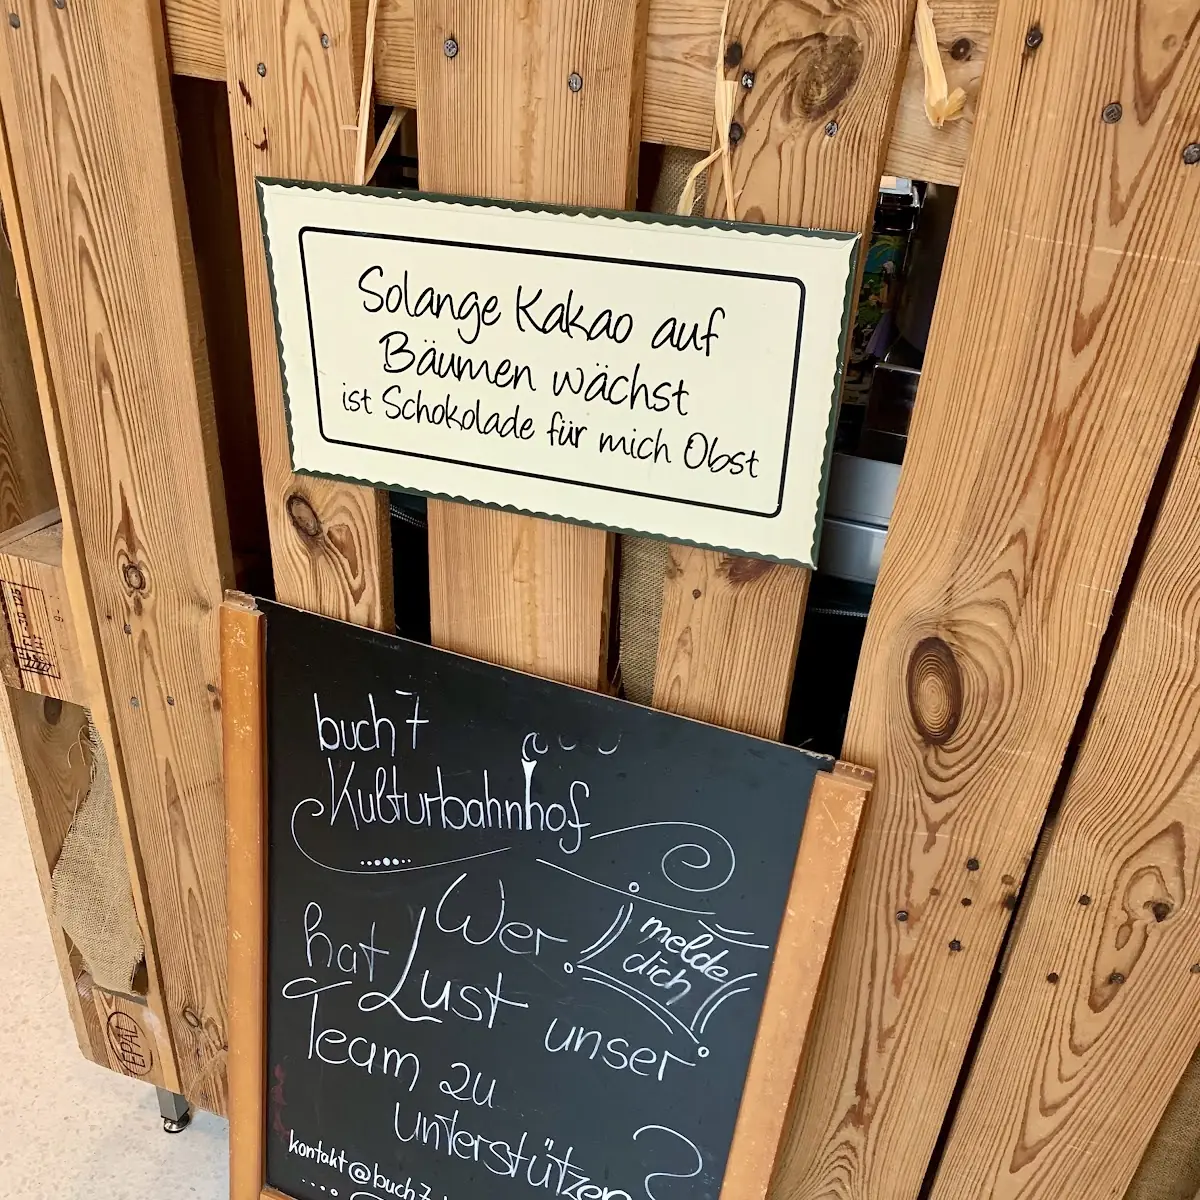 Solange Kakao auf
Bäumen wächst
ist Schokolade für mich Obst
buch7
Kulturbahnhof
Wer
melde
dich
hat Lust unser
Team zu
unterstützen?
kontakt@buch7
EPAL